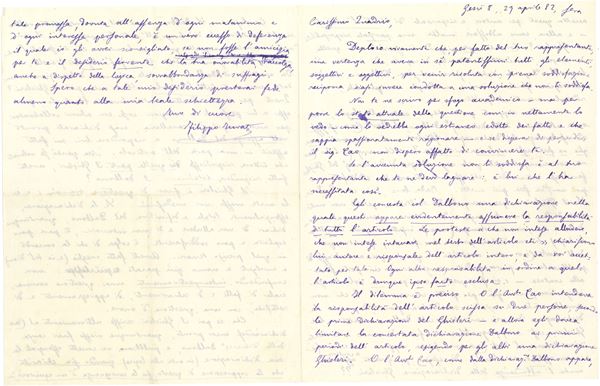 29 aprile 82, sera
Carissimo Quadrio,
Deploro vivamente che pel fatto del tuo rappresentante,
una vertenza che aveva in sé patentissimi tutti gli elementi,
soggettivi e oggettivi, per venir risoluta con piena soddisfazione
siasi invece condotta a una soluzione che non ti soddisfa.
Non te ne scrivo per sfogo accademico - ma per
lo stato attuale della questione com'io nettamente lo
vedo e come lo vedrebbe ogni estraneo edotto dei fatti e che
sappia spassionatamente ragionare - e se dispero di
il sig. Cao, non dispero affatto di convincere te.
Se l'avvenuta soluzione non ti soddisfa è al tuo
rappresentante che te ne devi lagnare: è lui che l'ha
necessitata così.
Egli concerta col Dalbono una dichiarazione nella
quale questi appare evidentemente assumere la responsabilità
di tutto l'articolo. Le proteste
che non intese nel testo dell'articolo
autore e responsabile dell'articolo intero, è da voi accet-
tato per tale. Ogni altra responsabilità in ordine a quel-
l'articolo è dunque ipso facto esclusa.
Il dilemma è preciso. O l'Avv. Cao intendeva
la responsabilità dell'articolo su due persone
la prima dichiarazione del Ghisleri - e allora egli doveva
limitare la concertata dichiarazione Dalbono ai primi
periodi dell'articolo, esigendo per gli altri una dichiarazione
Ghisleri. O l'Avv. Cao, come dalla dichiaraz. Dalbono appare,
tale promessa, dovuta all'assenza d'ogni malanimo e
d'ogni interesse personale, è un vero eccesso di deferenza
il quale io gli avrei sconsigliato, se non fosse l'amicizia
per te e il desiderio fervente che la tua onorabilità
anche a dispetto della lucca, sovrabbondanza di suffragi.
Spero che a tale mio desiderio presterai fede
almeno quanto alla mia leale schiettezza.
Tuo di cuore
Filippo Turati